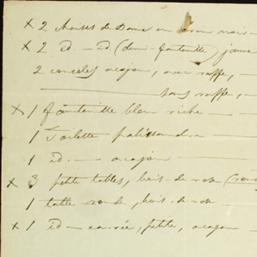 x 2 chaises de Dame en bois noir
x 2 id - id (demi-fauteuille) jaune
2 consoles acajou, avec
sans
x 1 fauteuille bleu riche
1 Toilette palissandre
1 id - acajou
x 3 petite tables, bois de rose
1 table ronde, bois de rose
x 1 id - carrée, petite, acajou